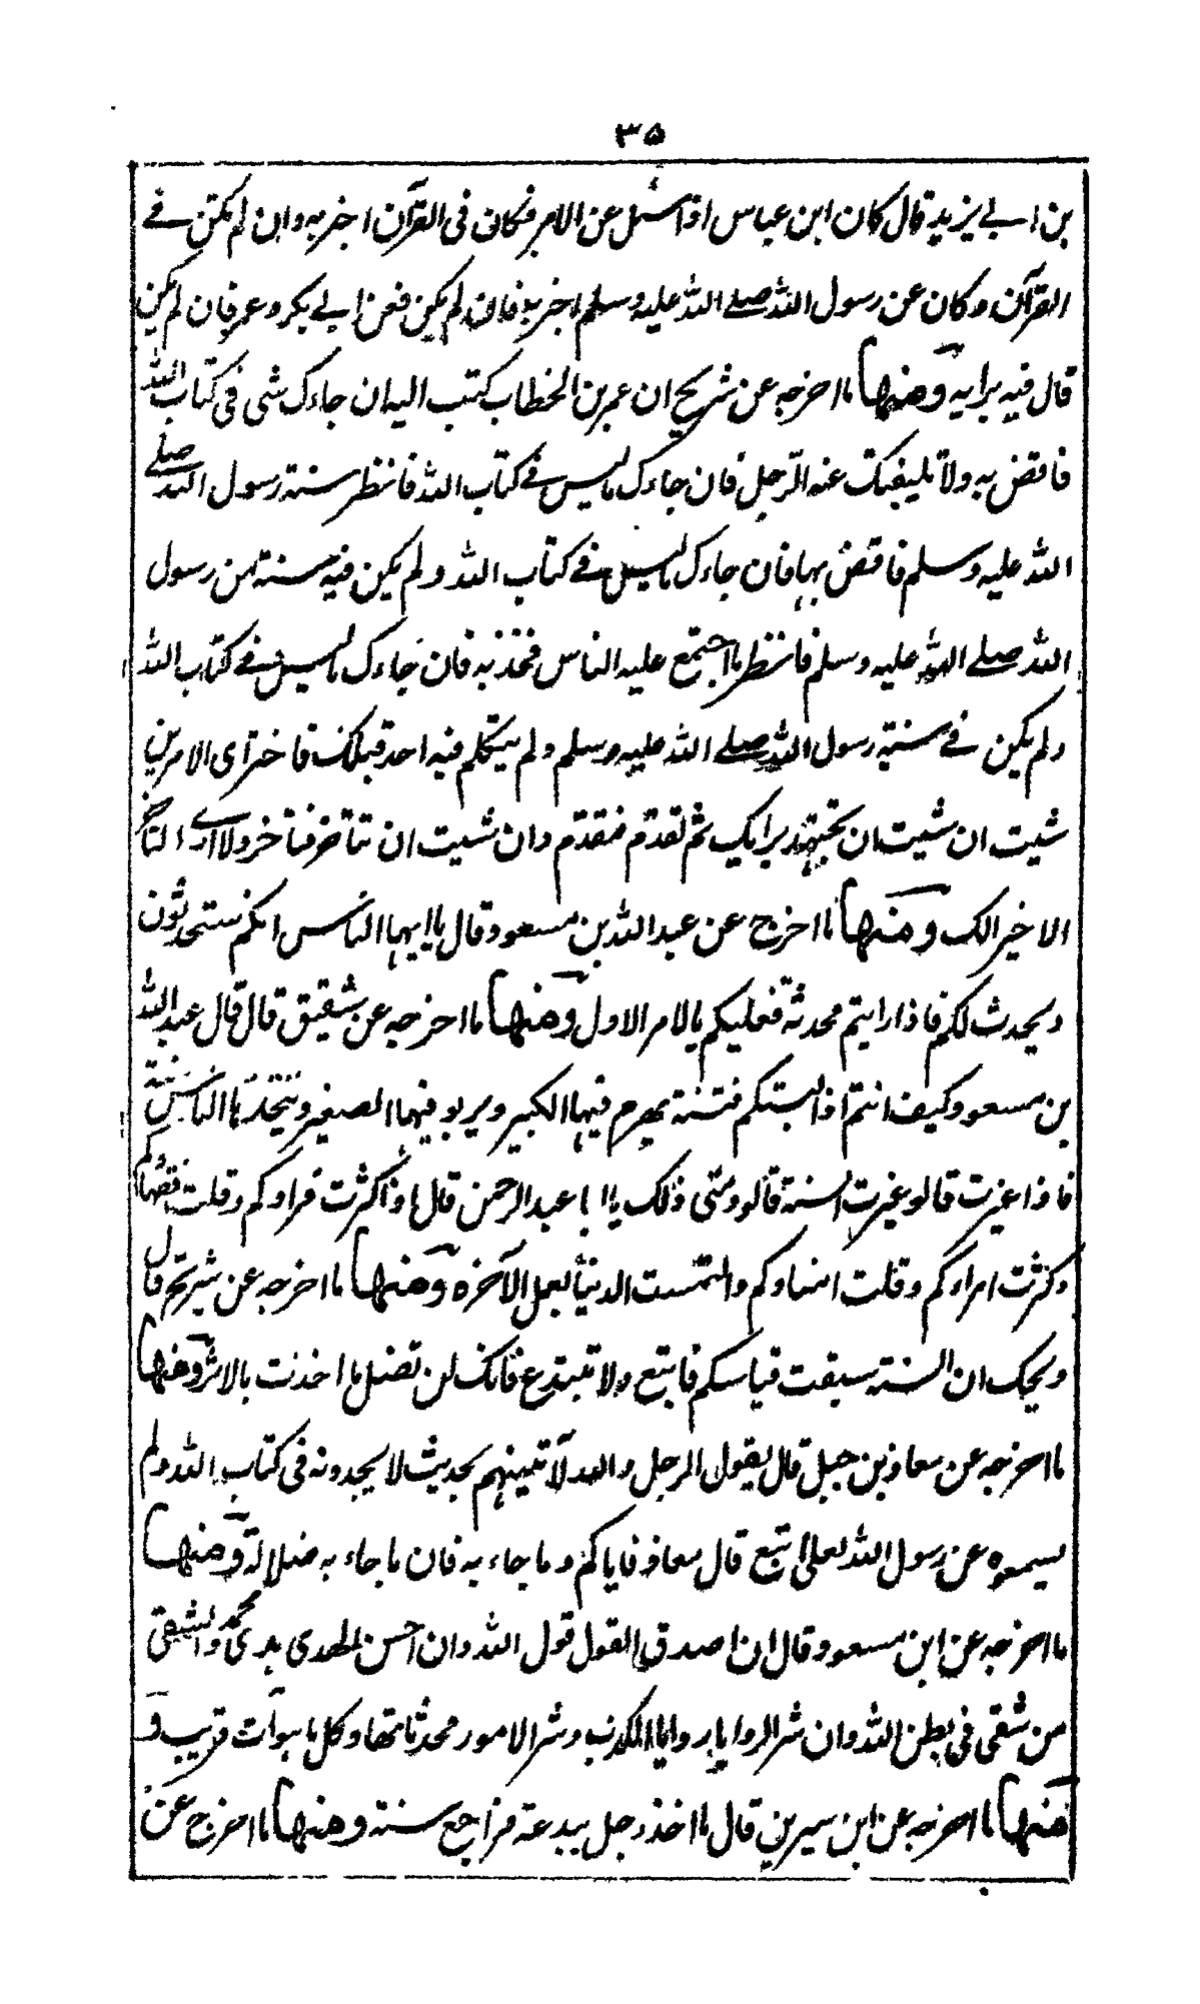 ۳۵
بن ابي يزيد قال كان ابن عباس اذا سئل عن الامر فكان فى القرآن اخبر به وان لم يكن في
القرآن وكان عن رسول الله صلے الله عليه وسلم اخبر به فان لم يكن فعن ابي بكر وعمر فان لم يكن
قال فيه برايه ومنها ما اخرجه عن شريح ان عمر بن الخطاب كتب اليه ان جاءك شى فى كتاب الله
فاقض به ولا يليفتك عنه الرجل فان جاءك ما ليس في كتاب الله فانظر سنة رسول الله صلے
الله عليه وسلم فاقض بها فان جاءك ما ليس في كتاب الله ولم يكن فيه سنة من رسول
الله صلے الله عليه وسلم فانظر ما اجتمع عليه الناس فخذ به فان جاءك ما ليس في كتاب الله
ولم يكن في سنة رسول الله صلے الله عليه وسلم ولم يتكلم فيه احد قبلك فاختر اى الامرين
شيت ان شيت ان تجتهد برايك ثم تقدم فتقدم وان شيت ان تتاخر فتأخر ولا ارے التأخر
الا خيرا لك ومنها ما اخرج عن عبد الله بن مسعود قال يا ايها الناس انكم ستحدثون
ويحدث لكم فاذا رايتم محدثة فعليكم بالامر الاول ومنها ما اخرجه عن شقيق قال قال عبد الله
بن مسعود كيف انتم اذا لبستكم فتنة يهرم فيها الكبير ويربو فيها الصغير ويتخذها الناس سنة
فاذا غيرت قالو غيرت السنة قالو ومتى ذلك يا ابا عبد الرحمن قال اذا كثرت قراوكم وقلت فقهاوكم
وكثرت امراوكم وقلت امناوكم والتمست الدنيا بعمل الآخره ومنها ما اخرجه عن شريح قال
ويحك ان السنة سبقت قياسكم فاتبع ولا تبتدع فانك لن تضل ما اخذت بالاثر ومنها
ما اخرجه عن معاذ بن جبل قال يقول الرجل والله لآتينهم بحديث لا يجدونه فى كتاب الله ولم
يسمعوه عن رسول الله لعلى اتبع قال معاذ فاياكم وما جاء به فان ما جاء به ضلالة ومنها
ما اخرجه عن ابن مسعود قال ان اصدق القول قول الله وان احسن الهدى هدى محمد والشقى
من شقى فى بطن الله وان شر الروايا روايا الكذب وشر الامور محدثاتها وكل ما هو آت قريب و
منها ما اخرجه عن ابن سيرين قال ما اخذ رجل ببدعة فراجع سنة ومنها ما اخرج عن